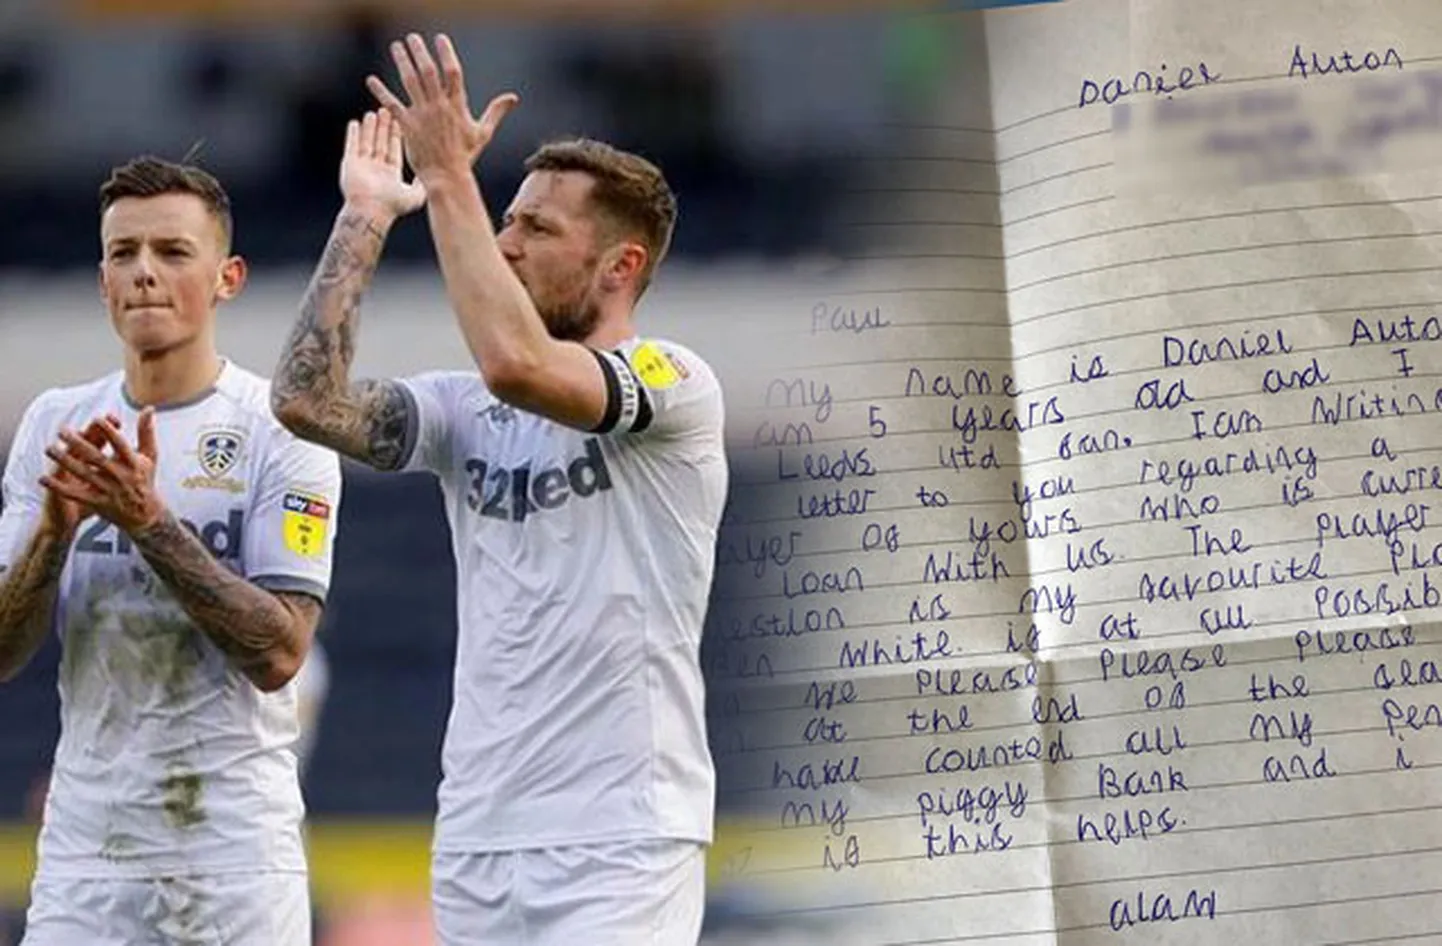 Daniel Auton
Paul
My name is Daniel Auto
am 5 years old and I
Leeds utd fan. I am writin
letter to you regarding a
ayer of yours who is curre
Loan with us. The player
estion is my favourite pla
Ben White. if at all possib
we please please please
at the end of the sea
have counted all my pen
my piggy Bank and i
if this helps.
alan
32Red
32Red
sky